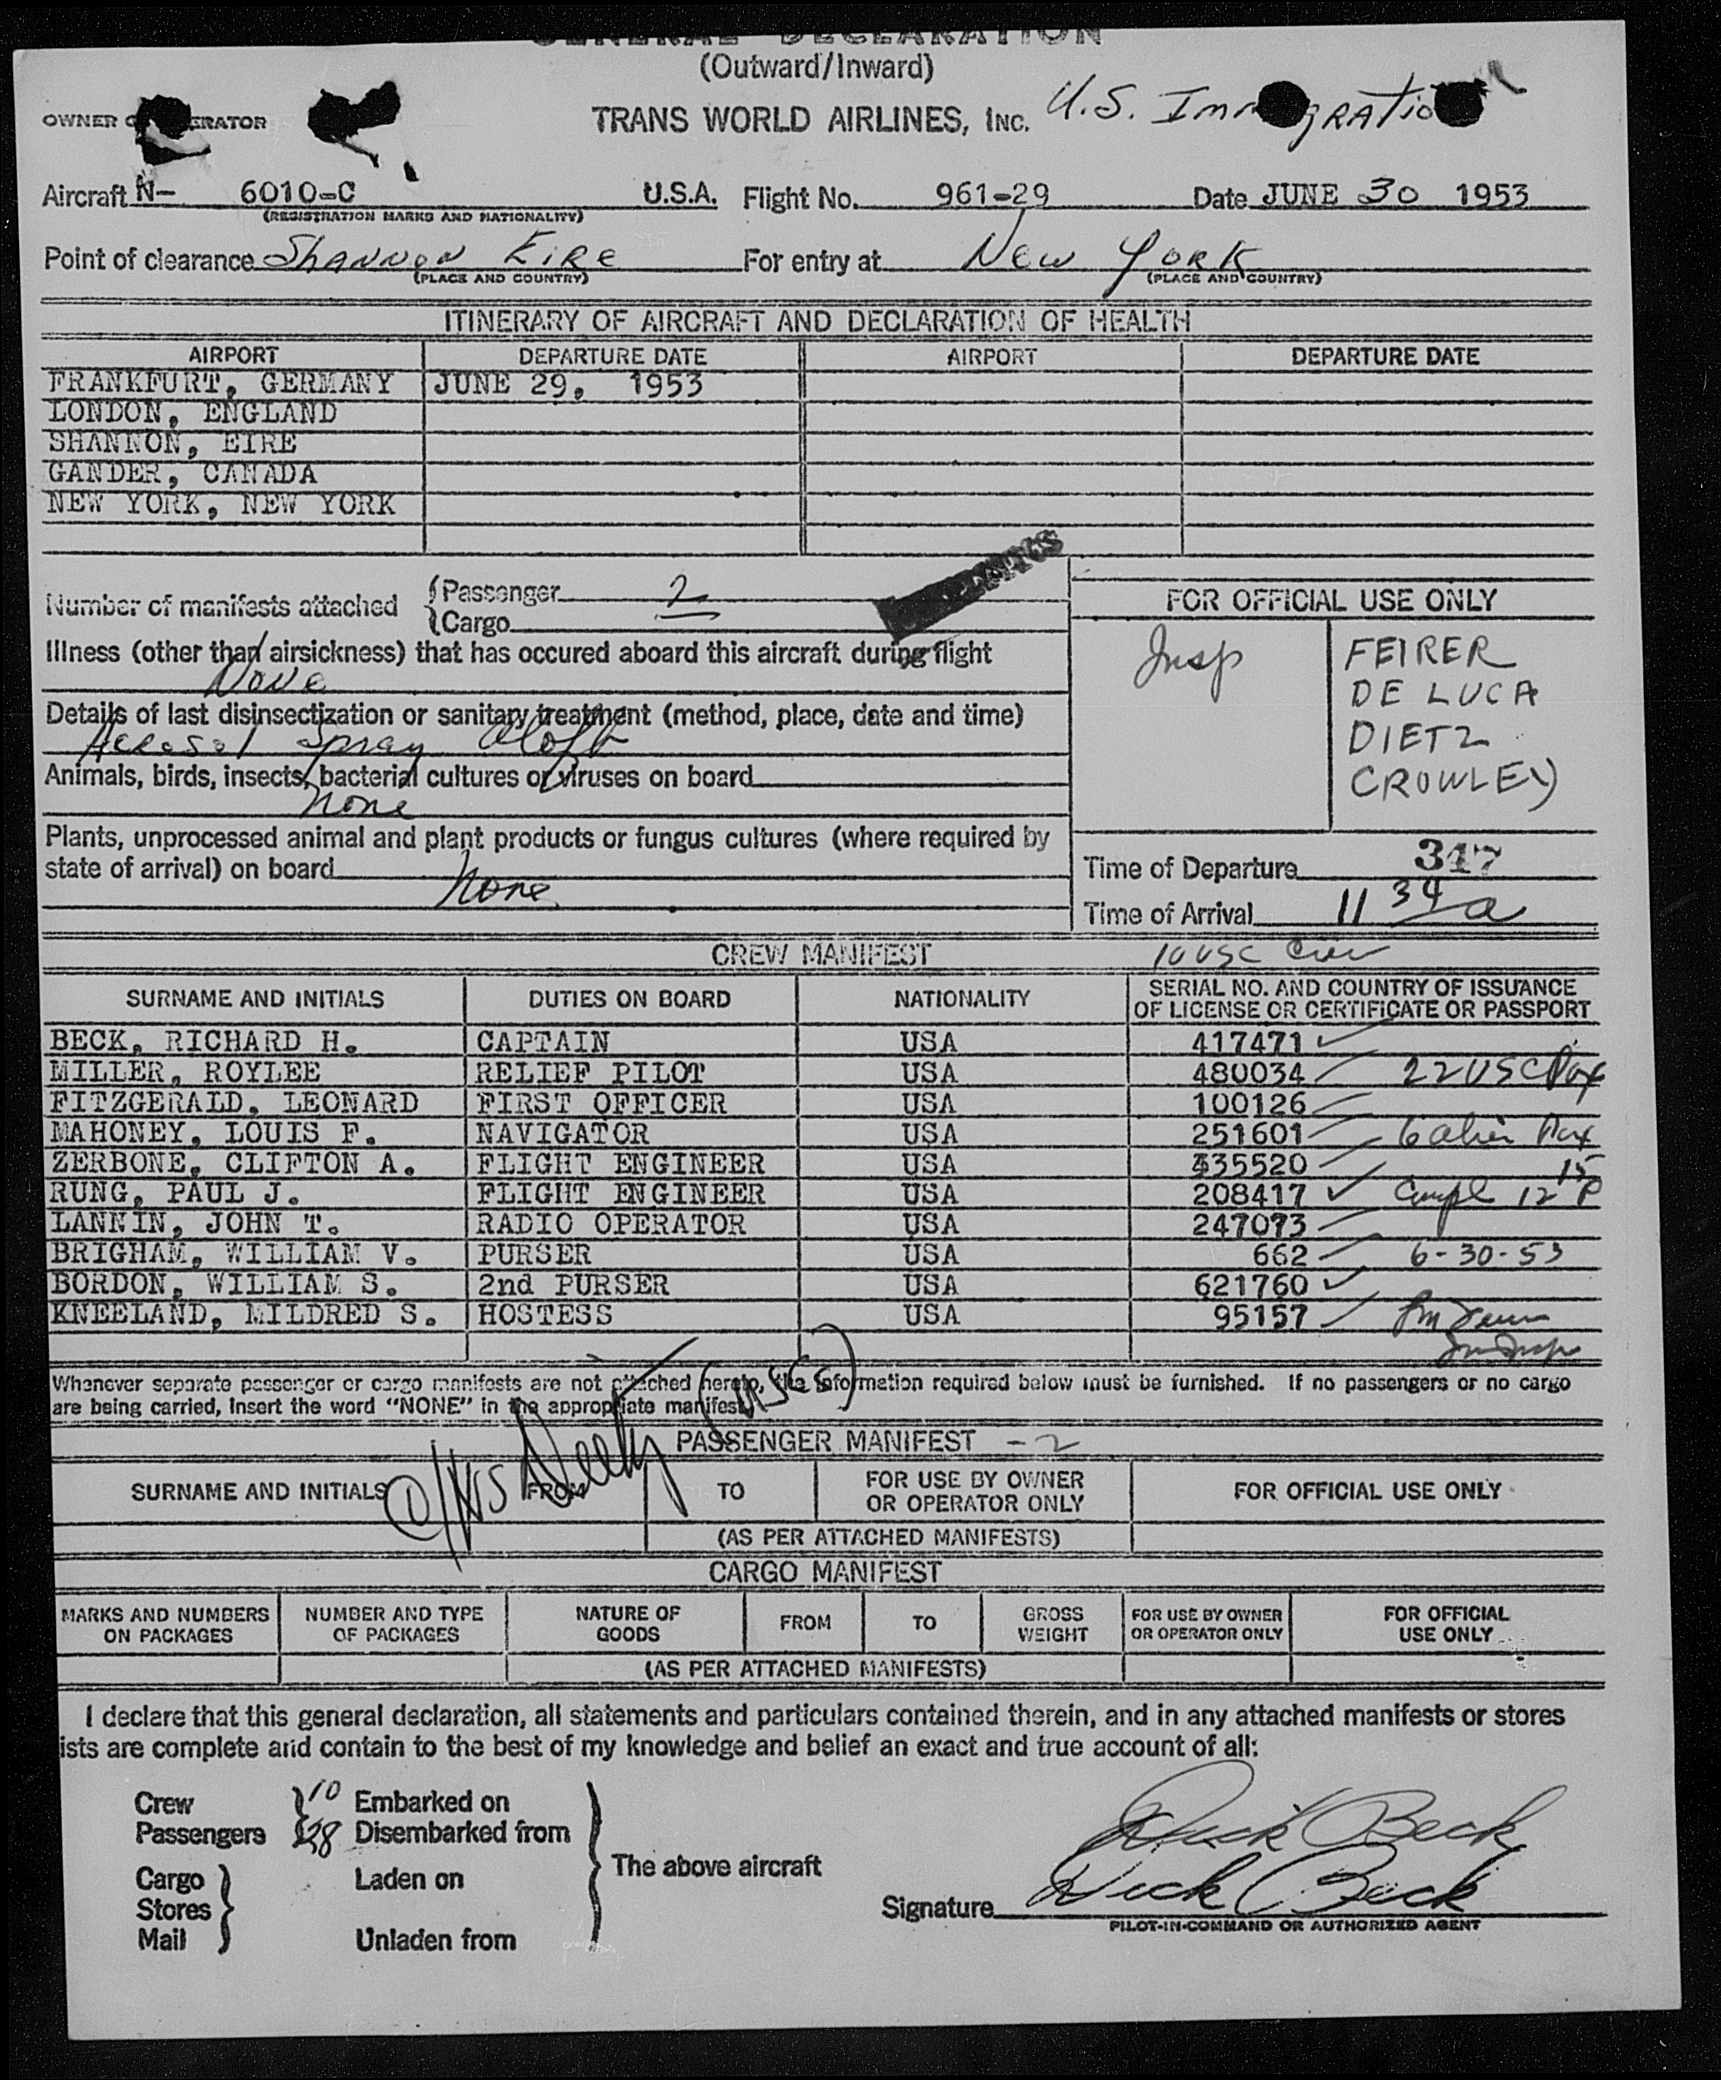 GENERAL DECLARATION
(Outward/Inward)
OWNER OPERATOR TRANS WORLD AIRLINES, INC. U.S. Immigration
Aircraft N- 6010-C U.S.A. Flight No. 961-29 Date JUNE 30 1953
(REGISTRATION MARKS AND NATIONALITY)
Point of clearance Shannon Eire For entry at New York
(PLACE AND COUNTRY) (PLACE AND COUNTRY)
ITINERARY OF AIRCRAFT AND DECLARATION OF HEALTH
AIRPORT DEPARTURE DATE AIRPORT DEPARTURE DATE
FRANKFURT, GERMANY JUNE 29, 1953
LONDON, ENGLAND
SHANNON, EIRE
GANDER, CANADA
NEW YORK, NEW YORK
Number of manifests attached Passenger 2
Cargo
FOR OFFICIAL USE ONLY
Illness (other than airsickness) that has occured aboard this aircraft during flight
None
Details of last disinsectization or sanitary treatment (method, place, date and time)
Aerosol Spray Aloft
Animals, birds, insects, bacterial cultures or viruses on board
None
Plants, unprocessed animal and plant products or fungus cultures (where required by
state of arrival) on board
None
Insp FEIRER
DE LUCA
DIETZ
CROWLEY
Time of Departure 347
Time of Arrival 11 34 a
CREW MANIFEST 10 USC Crew
SURNAME AND INITIALS DUTIES ON BOARD NATIONALITY SERIAL NO. AND COUNTRY OF ISSUANCE
OF LICENSE OR CERTIFICATE OR PASSPORT
BECK, RICHARD H. CAPTAIN USA 417471
MILLER, ROYLEE RELIEF PILOT USA 480034 22 USC Pax
FITZGERALD, LEONARD FIRST OFFICER USA 100126
MAHONEY, LOUIS F. NAVIGATOR USA 251601 6 alien Pax
ZERBONE, CLIFTON A. FLIGHT ENGINEER USA 335520
RUNG, PAUL J. FLIGHT ENGINEER USA 208417 Compl 12 15 P
LANNIN, JOHN T. RADIO OPERATOR USA 247073
BRIGHAM, WILLIAM V. PURSER USA 662 6-30-53
BORDON, WILLIAM S. 2nd PURSER USA 621760
KNEELAND, MILDRED S. HOSTESS USA 95157
Whenever separate passenger or cargo manifests are not attached hereto, the information required below must be furnished. If no passengers or no cargo
are being carried, insert the word "NONE" in the appropriate manifest.
PASSENGER MANIFEST - 2
SURNAME AND INITIALS FROM TO FOR USE BY OWNER
OR OPERATOR ONLY FOR OFFICIAL USE ONLY
(AS PER ATTACHED MANIFESTS)
CARGO MANIFEST
MARKS AND NUMBERS
ON PACKAGES NUMBER AND TYPE
OF PACKAGES NATURE OF
GOODS FROM TO GROSS
WEIGHT FOR USE BY OWNER
OR OPERATOR ONLY FOR OFFICIAL
USE ONLY
(AS PER ATTACHED MANIFESTS)
I declare that this general declaration, all statements and particulars contained therein, and in any attached manifests or stores
ists are complete and contain to the best of my knowledge and belief an exact and true account of all:
Crew 10 Embarked on
Passengers 28 Disembarked from
Cargo Laden on The above aircraft
Stores
Mail Unladen from
Dick Beck
Signature Dick Beck
PILOT-IN-COMMAND OR AUTHORIZED AGENT